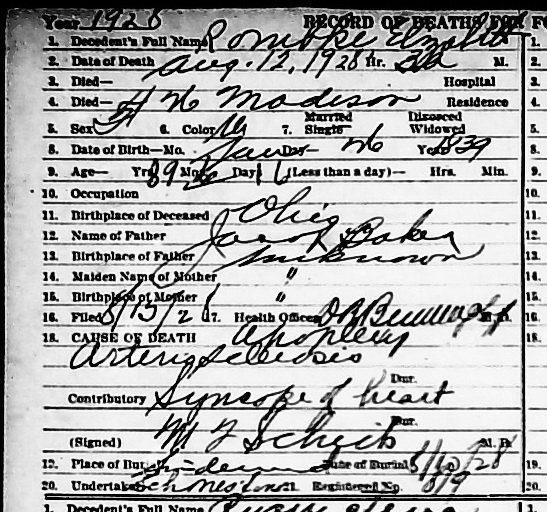 Year 1928 RECORD OF DEATHS FOR
1. Decedent's Full Name Rombke Elzabeth
2. Date of Death Aug. 12, 1928 Hr. M.
3. Died— Hospital
4. Died— W Madison Residence
5. Sex F 6. Color W 7. Married Single Divorced Widowed
8. Date of Birth—Mo. Jan Day— 26 Year 1839
9. Age— Yrs. 89 Mos. 6 Days 16 (Less than a day)— Hrs. Min.
10. Occupation
11. Birthplace of Deceased Ohio
12. Name of Father Jacob Baker
13. Birthplace of Father Unknown
14. Maiden Name of Mother "
15. Birthplace of Mother "
16. Filed 8/13/28 17. Health Officer M. D.
18. CAUSE OF DEATH Apoplexy
Arteriosclerosis
Dur.
Contributory Syncope of heart
Dur.
(Signed) M F Scheib M. D.
19. Place of Burial Date of Burial 8/ /28
20. Undertaker 21. Registered No. 819
1. Decedent's Full Name